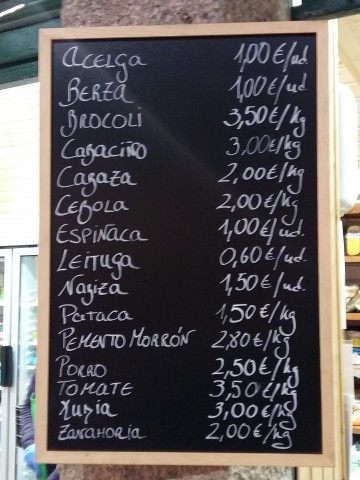 ACELGA 1,00€/ud.
BERZA 1,00€/ud.
BROCOLI 3,50€/kg
CABACIÑO 3,00€/kg
CABAZA 2,00€/kg
CEBOLA 2,00€/kg
ESPIÑACA 1,00€/ud.
LEITUGA 0,60€/ud.
NABIZA 1,50€/ud.
PATACA 1,50€/kg
PEMENTO MORRÓN 2,80€/kg
PORRO 2,50€/kg
TOMATE 3,50€/kg
3,00€/kg
ZANAHORIA 2,00€/kg